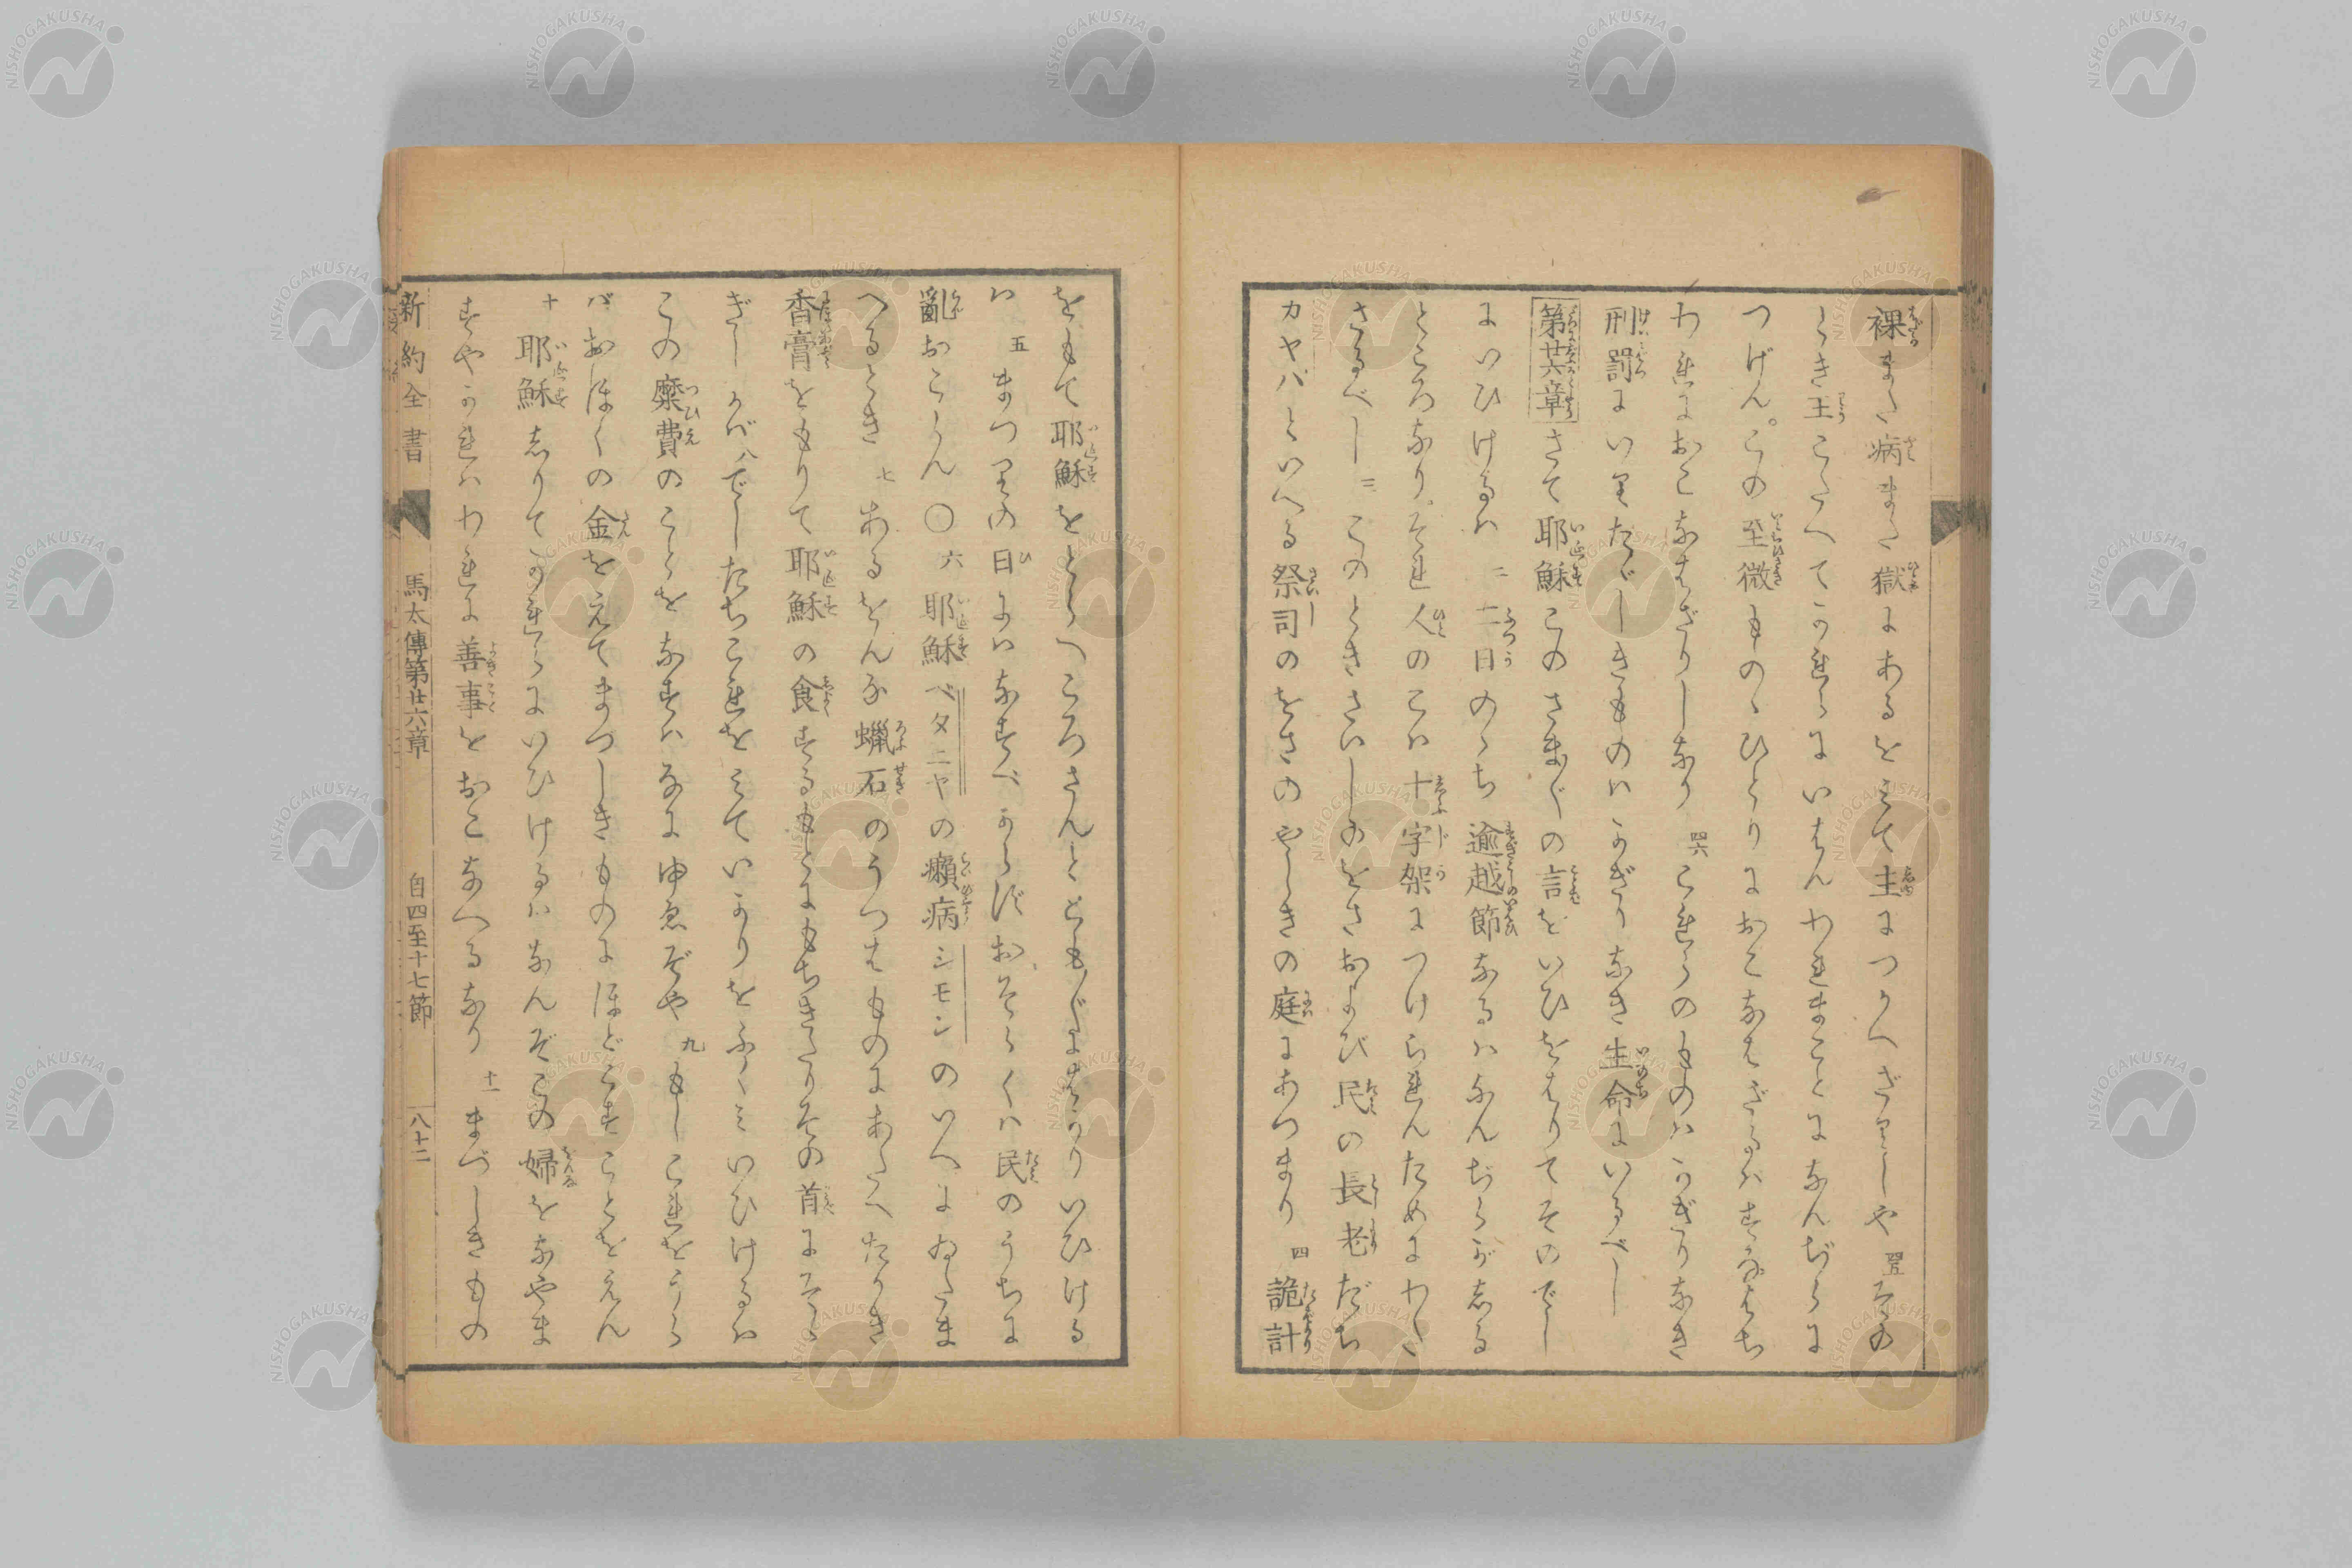 裸また病また獄にあるをみて主につかへざりしや 四五 その
とき王こたへてかれらにいはんわれまことになんぢらに
つげん。この至微ものゝひとりにおこなはざるハすなはち
われにおこなはざりしなり 四六 これらのものハかぎりなき
刑罰にいりたゞしきものハかぎりなき生命にいるべし
第廿六章 さて耶穌このさま〲の言をいひをはりてそのでし
にいひけるハ 二 二日のゝち逾越節なるハなんぢらが志る
ところなり。それ人のこハ十字架につけられんためにわた
さるべし 三 このときさいしのをさおよび民の長老だち
カヤパといへる祭司のをさのやしきの庭にあつまり 四 詭計
をもて耶穌をとらへころさんととも〲にはかりいひける
ハ 五 まつりの日にハなすべからずおそらくハ民のうちに
亂おこらん 〇 六 耶穌ベタニヤの癩病シモンのいへにゐたま
へるとき 七 あるをんな蠟石のうつはものにあたへたかき
香膏をもりて耶穌の食するもとにもちきたりその首にそゝ
ぎしかバ 八 でしたちこれをみていかりをふくミいひけるハ
この糜費のことをなすハなにゆゑぞや 九 もしこれをうら
バおほくの金をえてまづしきものにほどこすことをえん
十 耶穌志りてかれらにいひけるハなんぞこの婦をなやま
すやかれハわれに善事をおこなへるなり 十一 まづしきもの
新約全書 馬太傳第廿六章 自四至十七節 八十二
NISHOGAKUSHA